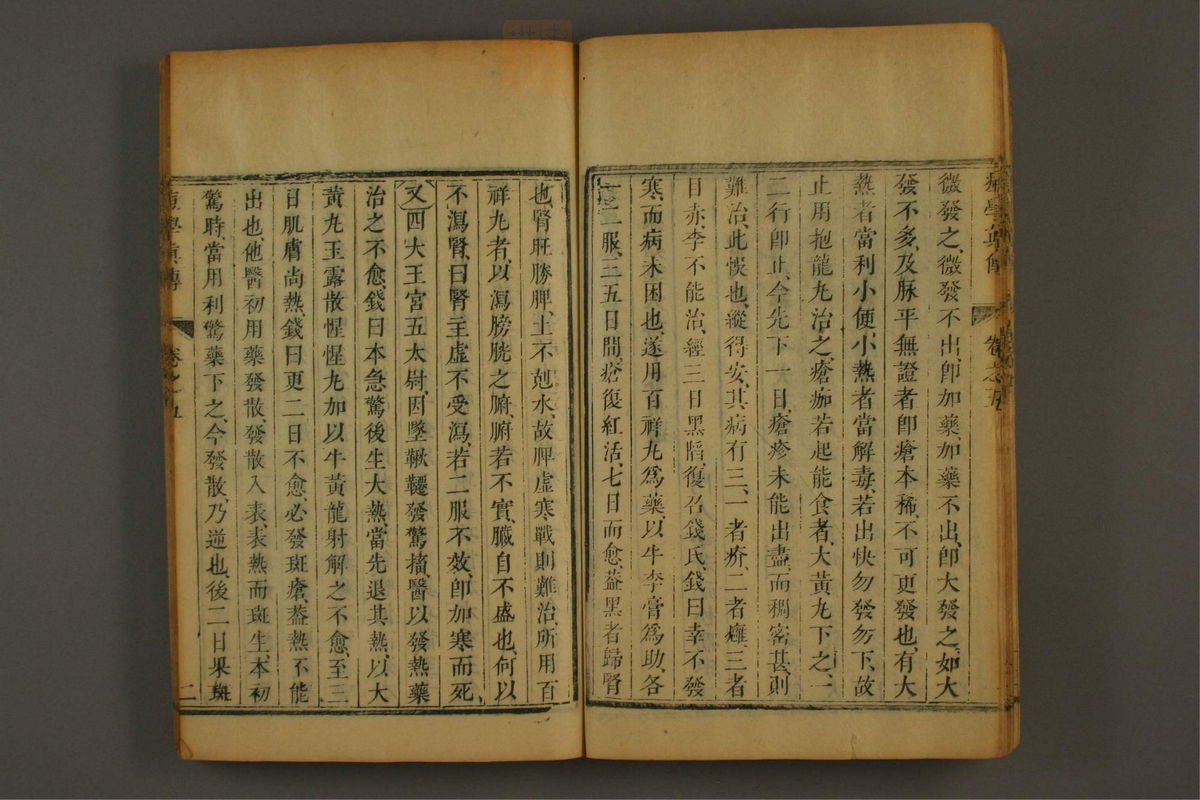 微發之、微發不出、卽加藥、加藥不出、卽大發之、如大
發不多、及脉平無證者、卽瘡本稀、不可更發也、有大
熱者、當利小便、小熱者、當解毒、若出快、勿發勿下、故
止用抱龍丸治之、瘡痂若起能食者、大黃丸下之、一
二行卽止、今先下一日、瘡疹未能出盡、而稠密甚、則
難治、此悞也、縱得安、其病有三、一者疥、二者癰、三者
目赤、李不能治、經三日黑陷、復召錢氏、錢曰幸不發
寒、而病未困也、遂用百祥丸爲藥、以牛李膏爲助、各
一服、至五日間、瘡復紅活、七日而愈、葢黑者歸腎
也、腎旺勝脾、土不尅水、故脾虛寒戰則難治、所用百
祥丸者、以瀉膀胱之腑、腑若不實、臟自不盛也、何以
不瀉腎、曰腎主虛不受瀉、若二服不效、卽加寒而死
又四大王宮五太尉、因墜鞦韆發驚搐、醫以發熱藥
治之不愈、錢曰本急驚後生大熱、當先退其熱、以大
黃丸玉露散惺惺丸加以牛黃龍射解之不愈、至三
日肌膚尚熱、錢曰更二日不愈、必發斑瘡、葢熱不能
出也、他醫初用藥發散、發散入表、表熱而斑生、本初
驚時、當用利驚藥下之、今發散、乃逆也、後二日果斑
痘學眞傳 卷之五 二